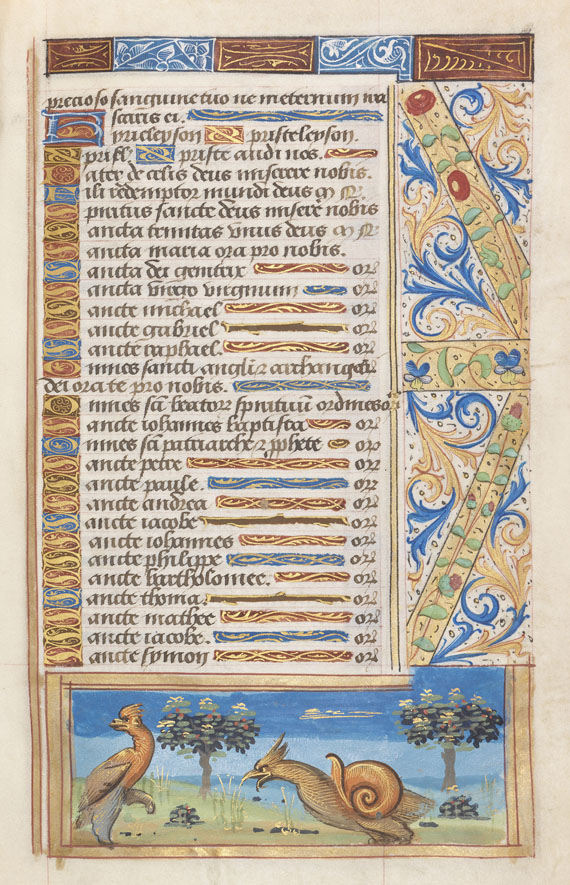 precioso sanguine tuo ne in eternum ira
scaris ei.
Kirieleyson xpisteleyson.
Kyriel xpiste audi nos.
Pater de celis deus miserere nobis.
Fili redemptor mundi deus m
Spiritus sancte deus misere nobis
Sancta trinitas vnus deus m
Sancta maria ora pro nobis.
Sancta dei genitrix or
Sancta virgo virginum or
Sancte michael or
Sancte gabriel or
Sancte raphael. or
Omnes sancti angeli z archangeli
dei orate pro nobis.
Omnes sci beatorz spirituum ordines or
Sancte iohannes baptista or
Omnes sci patriarche z pphete or
Sancte petre or
Sancte paule. or
Sancte andrea or
Sancte iacobe or
Sancte iohannes or
Sancte philippe or
Sancte bartholomee. or
Sancte thoma. or
Sancte mathee or
Sancte iacobe. or
Sancte symon or